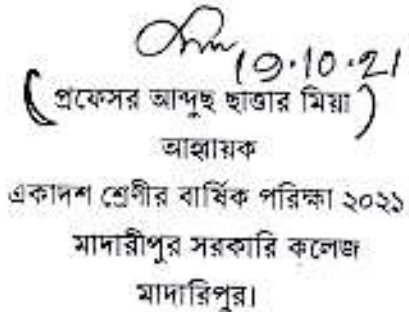 19.10.21
(প্রফেসর আব্দুছ ছাত্তার মিয়া)
আহ্বায়ক
একাদশ শ্রেণীর বার্ষিক পরিক্ষা ২০২১
মাদারীপুর সরকারি কলেজ
মাদারিপুর।